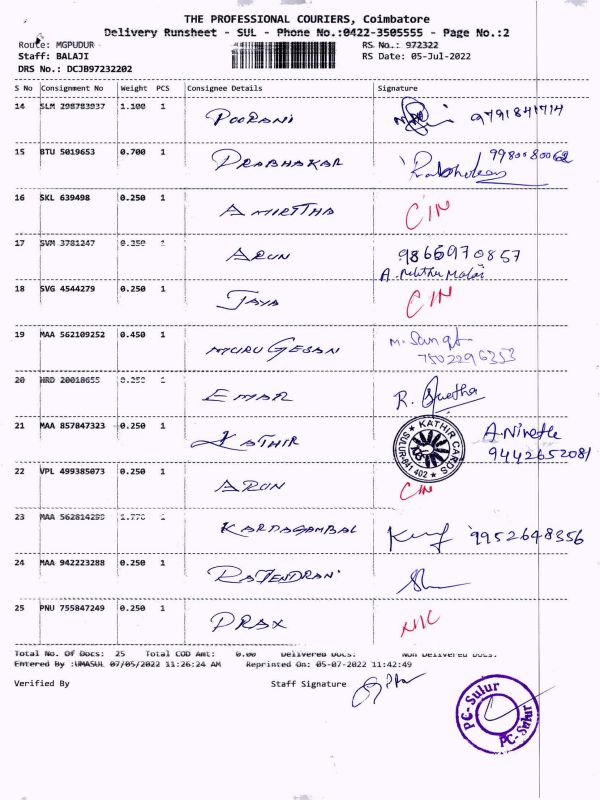 THE PROFESSIONAL COURIERS, Coimbatore
Delivery Runsheet - SUL - Phone No.:0422-3505555 - Page No.:2
Route: MGPUDUR RS No.: 972322
Staff: BALAJI RS Date: 05-Jul-2022
DRS No.: DCJB97232202
S No Consignment No Weight PCS Consignee Details Signature
14 SLM 298783937 1.100 1 POORANI 9791841714
15 BTU 5019653 0.700 1 PRABHAKAR 9980080062
Prabhakar
16 SKL 639498 0.250 1 AMIRTTHA CIN
17 SVM 3781247 0.250 1 ARUN 9866970857
A.
18 SVG 4544279 0.250 1 JAYA CIN
19 MAA 562109252 0.450 1 MURUGESAN M. Sangt
7502296353
20 HRD 20018655 0.250 1 EMAR R. Swetha
21 MAA 857847323 0.250 1 KATHIR KATHIR CARDS SULUR-641 402 A.
9442652081
22 VPL 499385073 0.250 1 ARUN CIN
23 MAA 562814299 1.770 1 KARPAGAMBAL 9952648356
24 MAA 942223288 0.250 1 RAJENDRAN
25 PNU 755847249 0.250 1 PRAX
Total No. Of Docs: 25 Total COD Amt: 0.00 Delivered Docs: Non Delivered Docs:
Entered By :UMASUL 07/05/2022 11:26:24 AM Reprinted On: 05-07-2022 11:42:49
Verified By Staff Signature
PC-Sulur
PC-Sulur